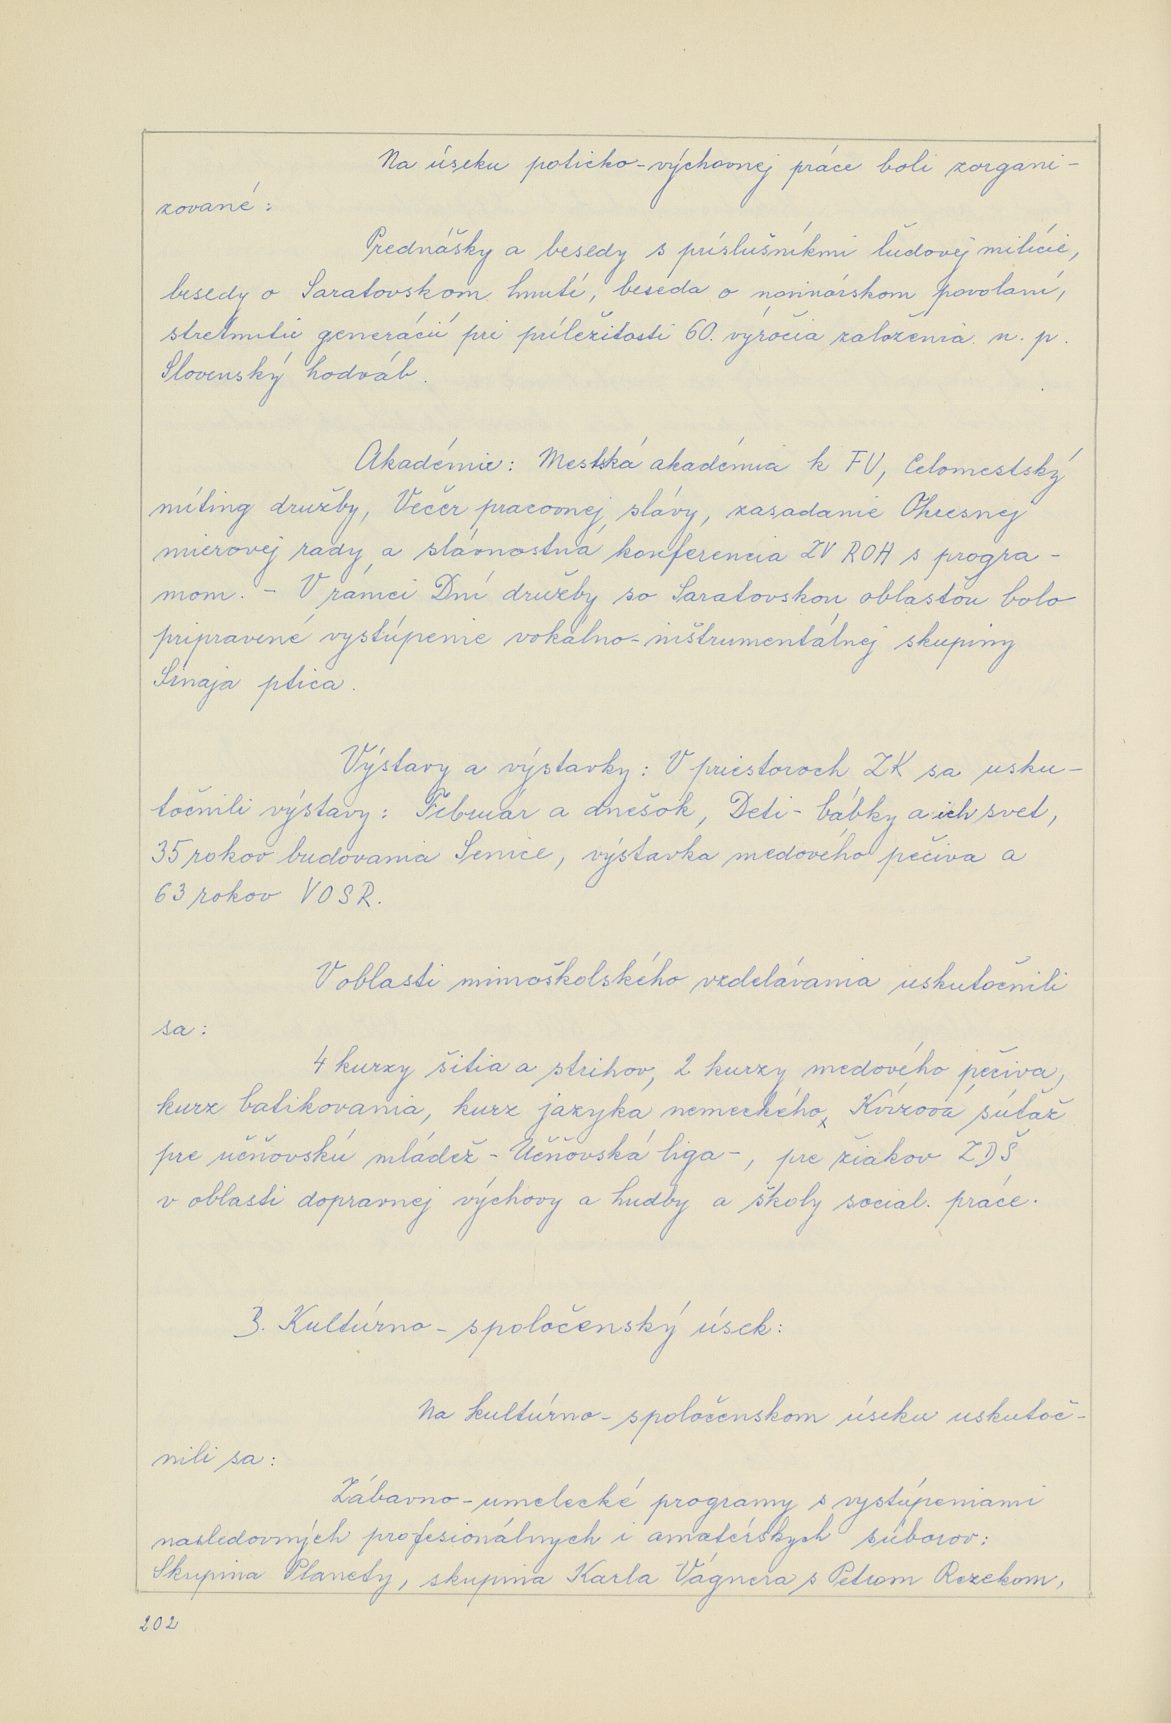 Na úseku policko-výchovnej práce boli zorgani-
zované:
Prednášky a besedy s príslušníkmi ľudovej milície,
besedy o Saratovskom hnutí, beseda o novinárskom povolaní,
stretnutie generácií pri príležitosti 60. výročia založenia n. p.
Slovenský hodváb.
Akadémie: Mestská akadémia k FV, Celomestský
míting družby, Večer pracovnej slávy, zasadanie Okresnej
mierovej rady a slávnostná konferencia ZV ROH s progra-
mom. - V rámci Dní družby so Saratovskou oblasťou bolo
pripravené vystúpenie vokálno-inštrumentálnej skupiny
Sinaja ptica.
Výstavy a výstavky: V priestoroch ZK sa usku-
točnili výstavy: Február a dnešok, Deti - bábky a ich svet,
35 rokov budovania Senice, výstavka medového pečiva a
63 rokov VOSR.
V oblasti mimoškolského vzdelávania uskutočnili
sa:
4 kurzy šitia a strihov, 2 kurzy medového pečiva,
kurz batikovania, kurz jazyka nemeckého, Kvízová súťaž
pre učňovskú mládež - Učňovská liga -, pre žiakov ZDŠ
v oblasti dopravnej výchovy a hudby a školy social. práce.
3. Kultúrno - spoločenský úsek:
Na kultúrno - spoločenskom úseku uskutoč-
nili sa:
Zábavno - umelecké programy s vystúpeniami
nasledovných profesionálnych i amatérskych súborov:
Skupina Planety, skupina Karla Vágnera s Petrom Rezekom,
202